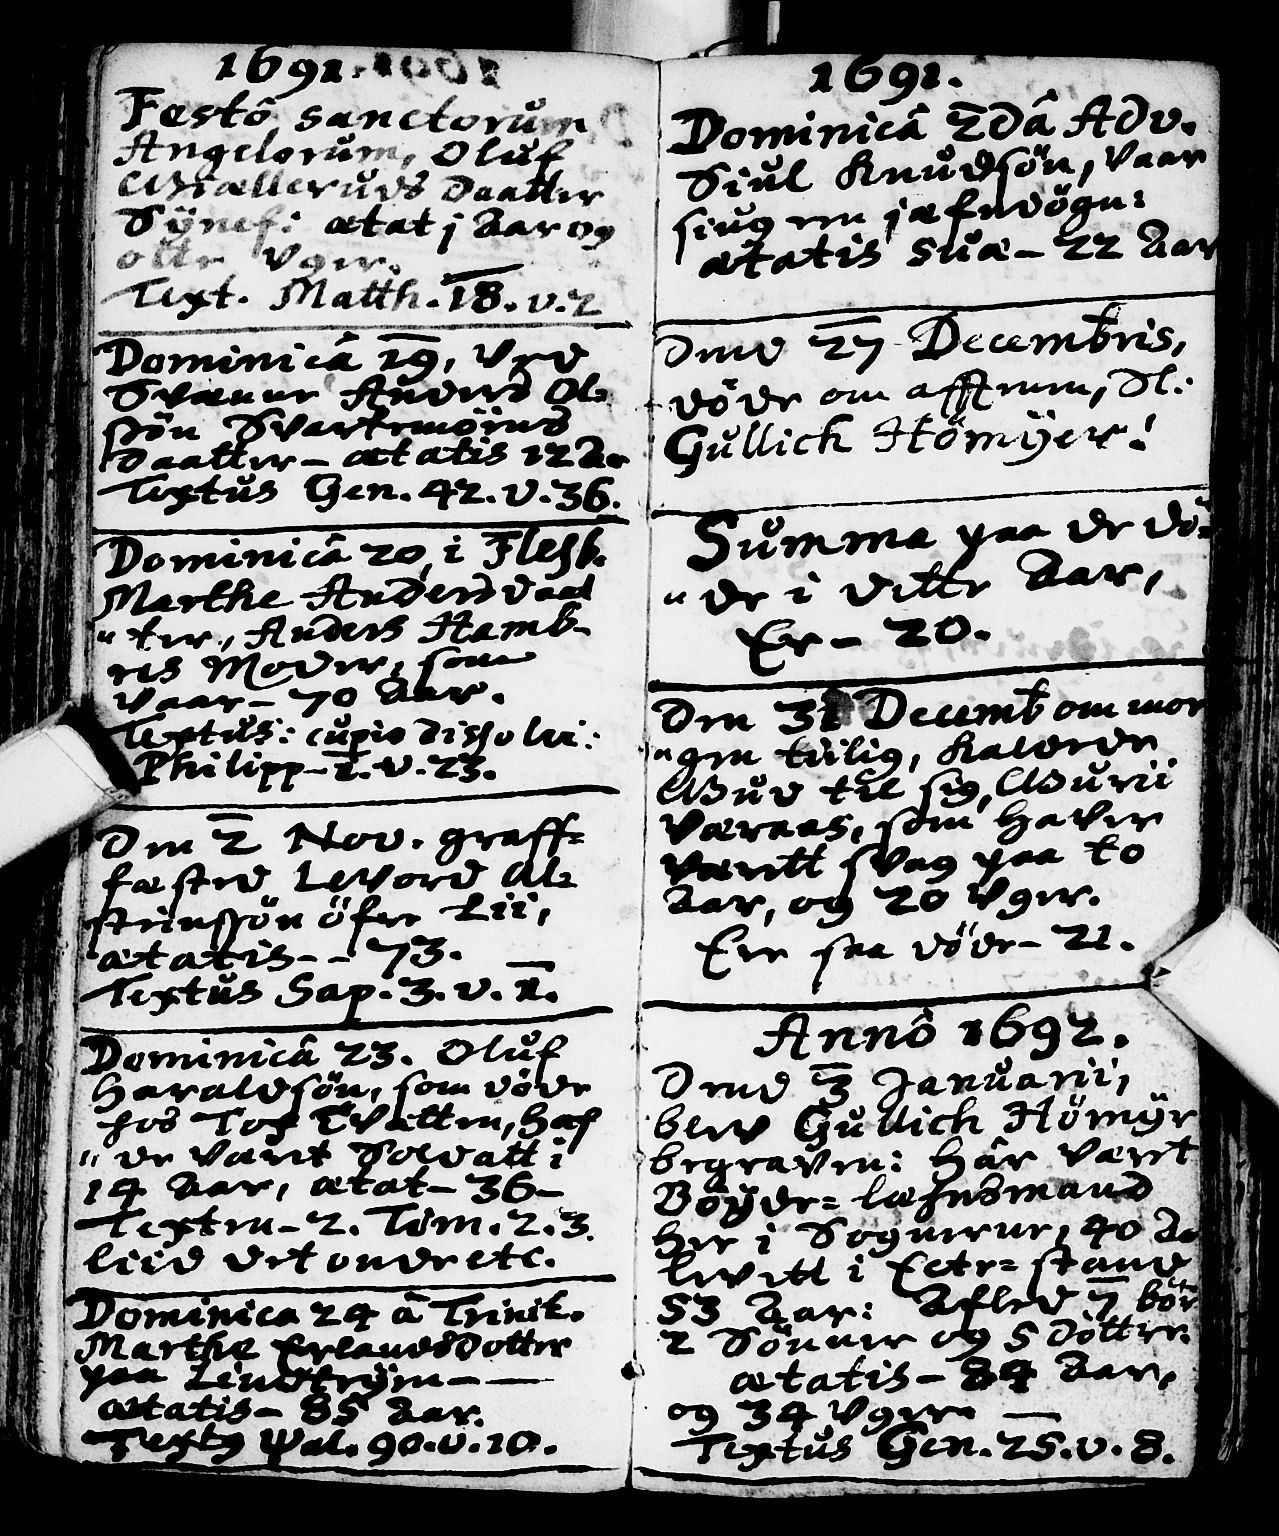 1691.
Festô sanctorum
Angelorum, Oluf
Mælleruds Daatter
Sÿnef: ætat j Aar og
otte Vger.
Text. Matth. 18. v. 2
Dominicâ 19, Ved
Svenne Anders Ol=
søn Svartemöens
Daatter – ætatis 12 Aa
Textus Gen. 42. v. 36.
Dominicâ 20, i Flesb.
Marthe Andersdaat
"ter, Anders Hamb-
res Moder, som
Vaar – 70 Aar.
Textus: cupio dissolvi:
Philipp – 1. v. 23.
Den 2 Nov. graff=
fæsted Levord Al=
steinssön öfre Lii,
ætatis – – 73.
Textus Sap. 3. v. 1.
Dominicâ 23. Oluf
Haraldsön, som döde
hos Tox Tvetten, haf
"de værit Soldatt i
14 Aar, ætat – 36 –
Texten – 2. Tim. 2. 3.
liid det onde etc.
Dominica 24 â Trinit.
Marthe Erlandsdotter
paa Lindtrÿm – –
ætatis – 85 Aar.
Text9 Psal. 90. v. 10.
1691.
Dominicâ 2dâ Adv.
Siul Knudsön, vaar
siug en jæfndögn:
ætatis suæ – 22 Aar
Dend 27 Decembris,
döde om afftenen, Sl:
Gullich Hömÿer!
Summa paa de dö=
"de i dette Aar,
Er – 20.
Den 31 Decemb om mor
"gen tiilig, kalede
Gud til sig, Gurii
Væraas, som haver
værett svag paa to
Aar, og 20 Vger.
Ere saa döde – 21.
Annô 1692.
Dend 3 Januarii,
blev Gullich Hömÿr
begraven: hâr verit
Böÿde= læhnsmand
her i Sognene, 40 Aa
levett i Ecte= stand
53 Aar: Afled 7 bör
2 Sönner og 5 döttre.
ætatis – 84 Aar,
og 34 Vger –
Textus Gen. 25. v. 8.